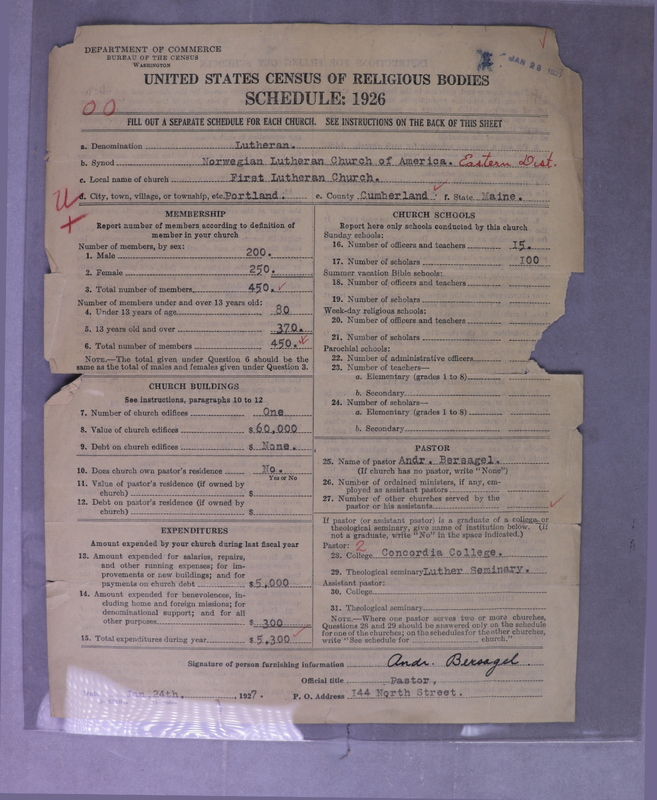 DEPARTMENT OF COMMERCE
BUREAU OF THE CENSUS
WASHINGTON
JAN 28 1927
UNITED STATES CENSUS OF RELIGIOUS BODIES
SCHEDULE: 1926
00
FILL OUT A SEPARATE SCHEDULE FOR EACH CHURCH. SEE INSTRUCTIONS ON THE BACK OF THIS SHEET
a. Denomination Lutheran.
b. Synod Norwegian Lutheran Church of America. Eastern Dist.
c. Local name of church First Lutheran Church.
d. City, town, village, or township, etc. Portland. e. County Cumberland f. State Maine.
U
MEMBERSHIP
Report number of members according to definition of
member in your church
Number of members, by sex:
1. Male 200.
2. Female 250.
3. Total number of members 450.
Number of members under and over 13 years old:
4. Under 13 years of age 80
5. 13 years old and over 370.
6. Total number of members 450.
NOTE.—The total given under Question 6 should be the
same as the total of males and females given under Question 3.
CHURCH BUILDINGS
See instructions, paragraphs 10 to 12
7. Number of church edifices One
8. Value of church edifices $60,000
9. Debt on church edifices $ None.
10. Does church own pastor's residence No.
Yes or No
11. Value of pastor's residence (if owned by
church) $
12. Debt on pastor's residence (if owned by
church) $
EXPENDITURES
Amount expended by your church during last fiscal year
13. Amount expended for salaries, repairs,
and other running expenses; for im-
provements or new buildings; and for
payments on church debt $5,000
14. Amount expended for benevolences, in-
cluding home and foreign missions; for
denominational support; and for all
other purposes $ 300
15. Total expenditures during year $5,300
CHURCH SCHOOLS
Report here only schools conducted by this church
Sunday schools:
16. Number of officers and teachers 15.
17. Number of scholars 100
Summer vacation Bible schools:
18. Number of officers and teachers
19. Number of scholars
Week-day religious schools:
20. Number of officers and teachers
21. Number of scholars
Parochial schools:
22. Number of administrative officers
23. Number of teachers—
a. Elementary (grades 1 to 8)
b. Secondary
24. Number of scholars—
a. Elementary (grades 1 to 8)
b. Secondary
PASTOR
25. Name of pastor Andr. Bersagel.
(If church has no pastor, write "None")
26. Number of ordained ministers, if any, em-
ployed as assistant pastors
27. Number of other churches served by the
pastor or his assistants
If pastor (or assistant pastor) is a graduate of a college or
theological seminary, give name of institution below. (If
not a graduate, write "No" in the space indicated.)
Pastor: 2
28. College Concordia College.
29. Theological seminary Luther Seminary.
Assistant pastor:
30. College
31. Theological seminary
NOTE.—Where one pastor serves two or more churches,
Questions 28 and 29 should be answered only on the schedule
for one of the churches; on the schedules for the other churches,
write "See schedule for church."
Signature of person furnishing information Andr. Bersagel
Official title Pastor,
Jan 24th, , 1927. P. O. Address 144 North Street.